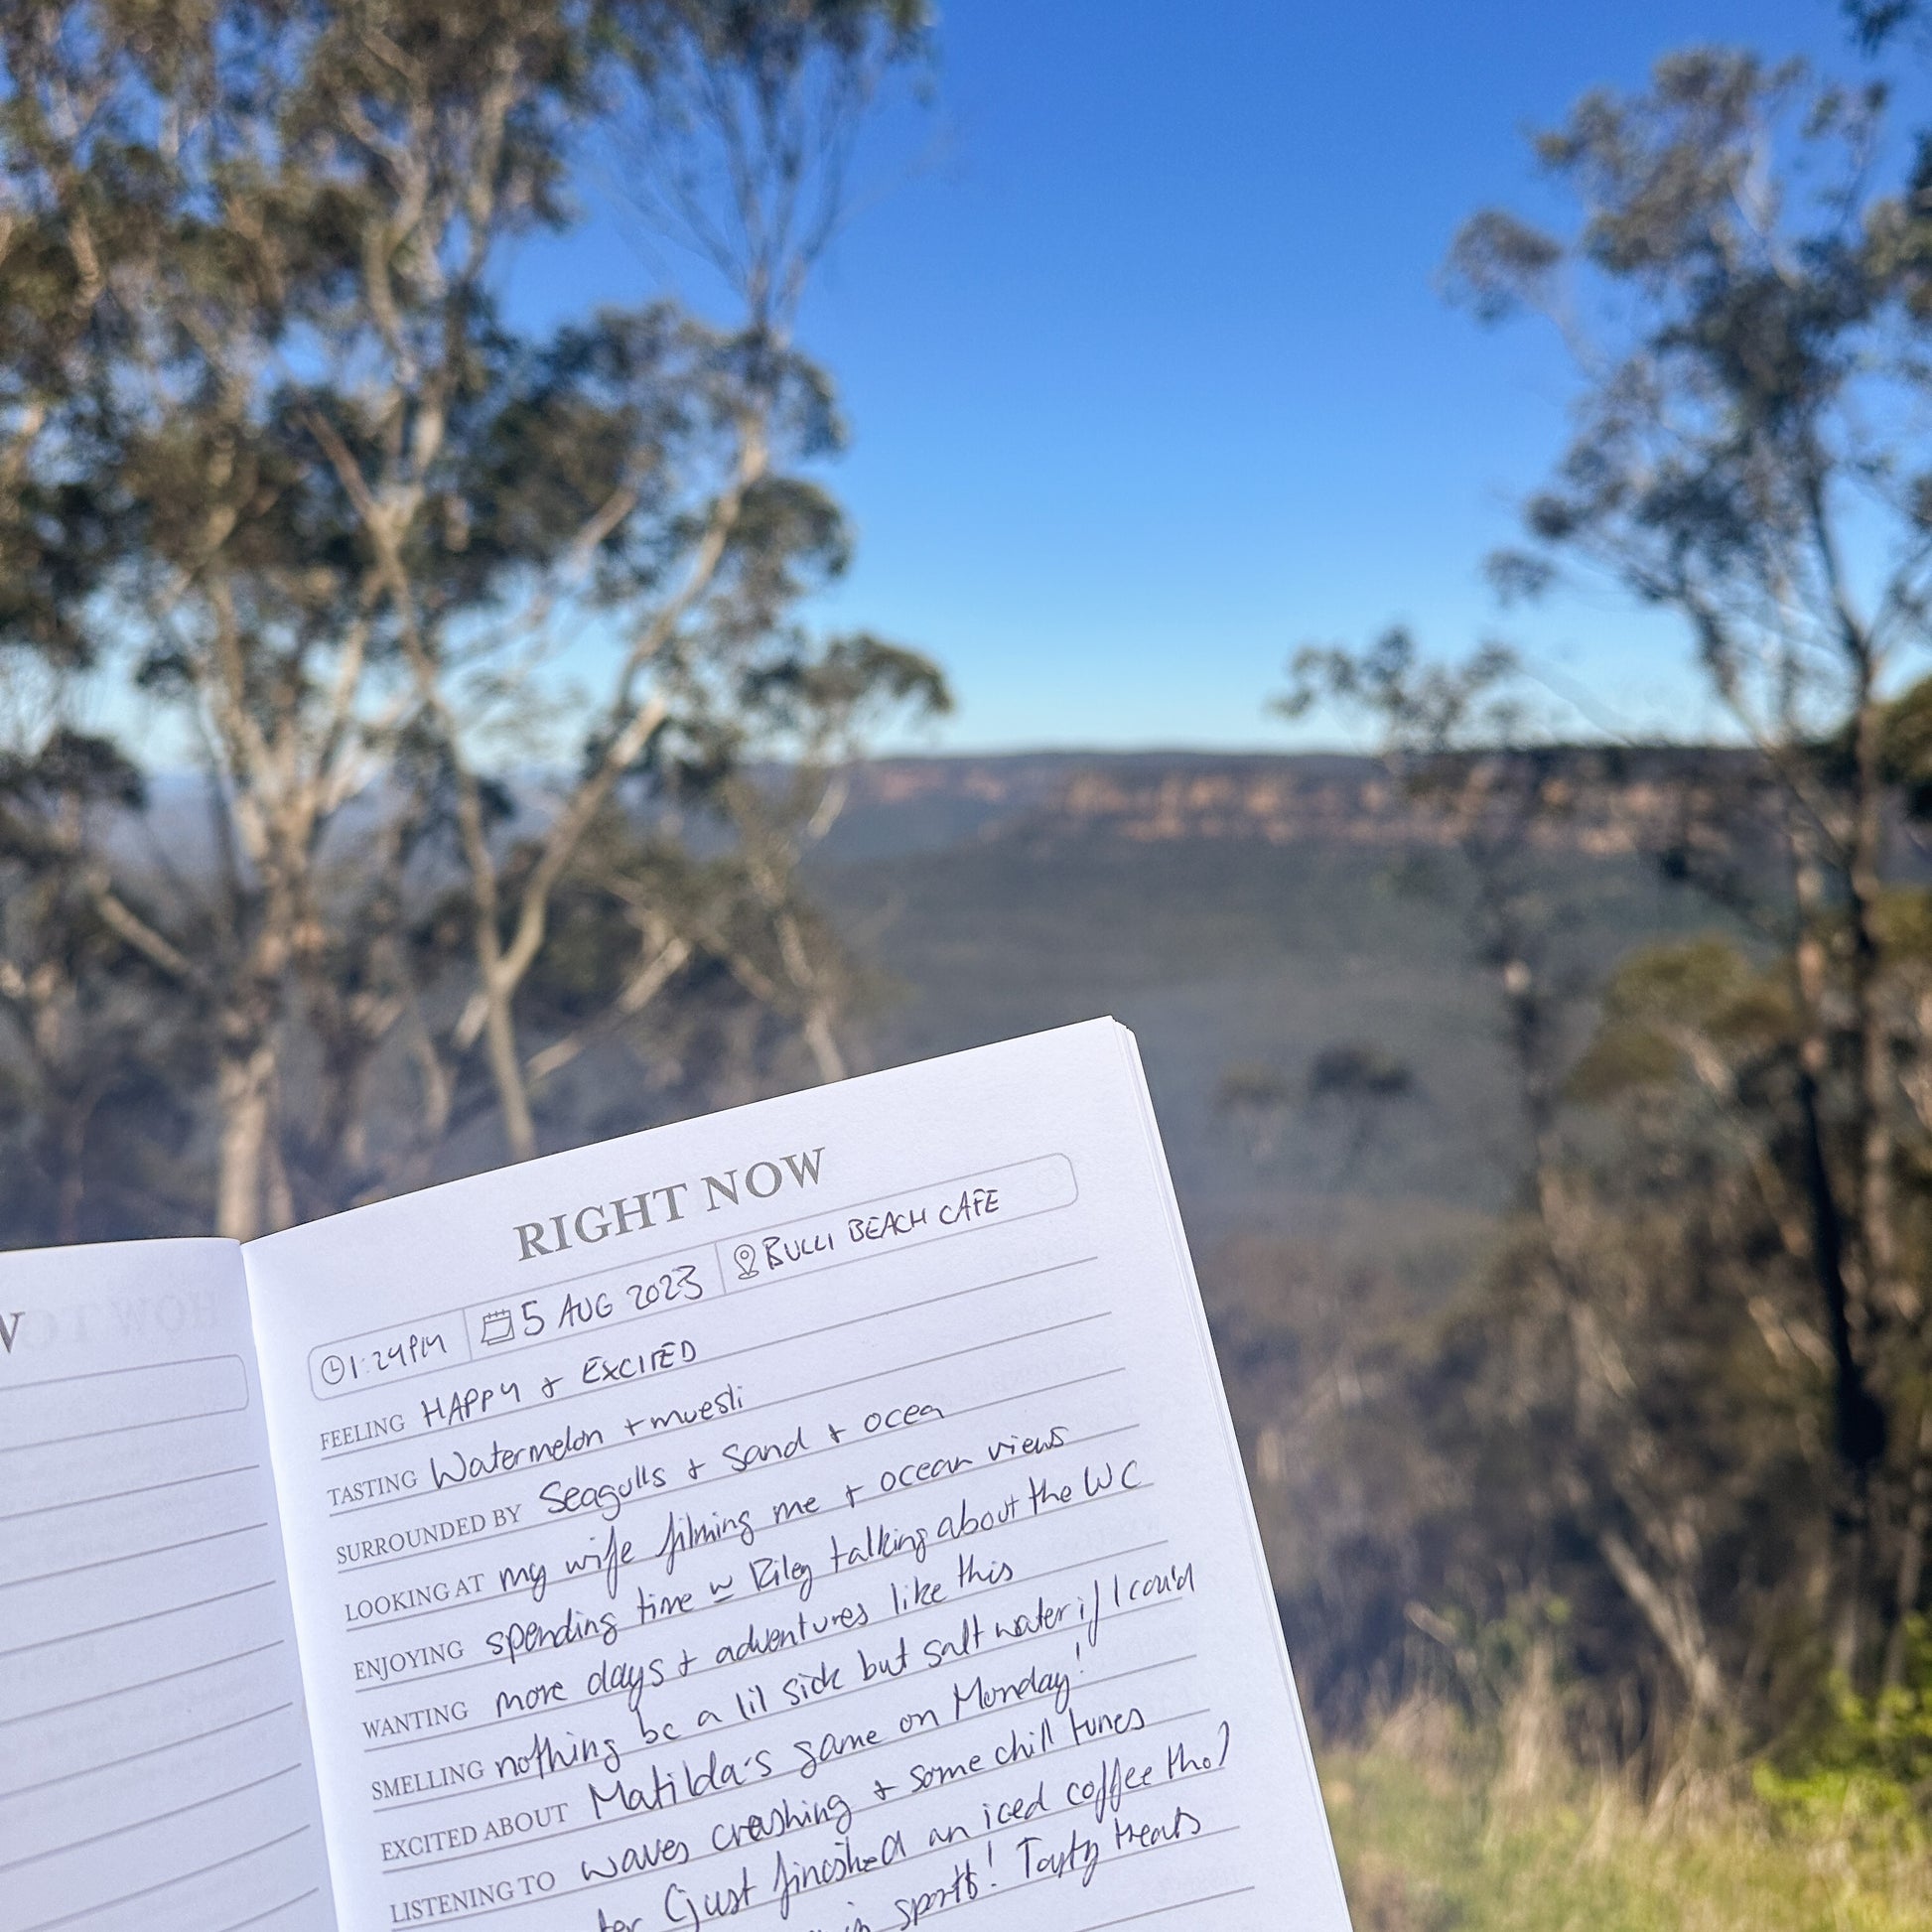 RIGHT NOW
1:24PM 5 AUG 2023 BULLI BEACH CAFE
FEELING HAPPY + EXCITED
TASTING Watermelon + muesli
SURROUNDED BY Seagulls + sand + ocea
LOOKING AT my wife filming me + ocean views
ENJOYING spending time w Riley talking about the WC
WANTING more days + adventures like this
SMELLING nothing bc a lil sick but salt water if I could
EXCITED ABOUT Matilda's game on Monday!
LISTENING TO waves crashing + some chill tunes
(just finished an iced coffee tho)
sports! Tasty treats
W
HOW TO